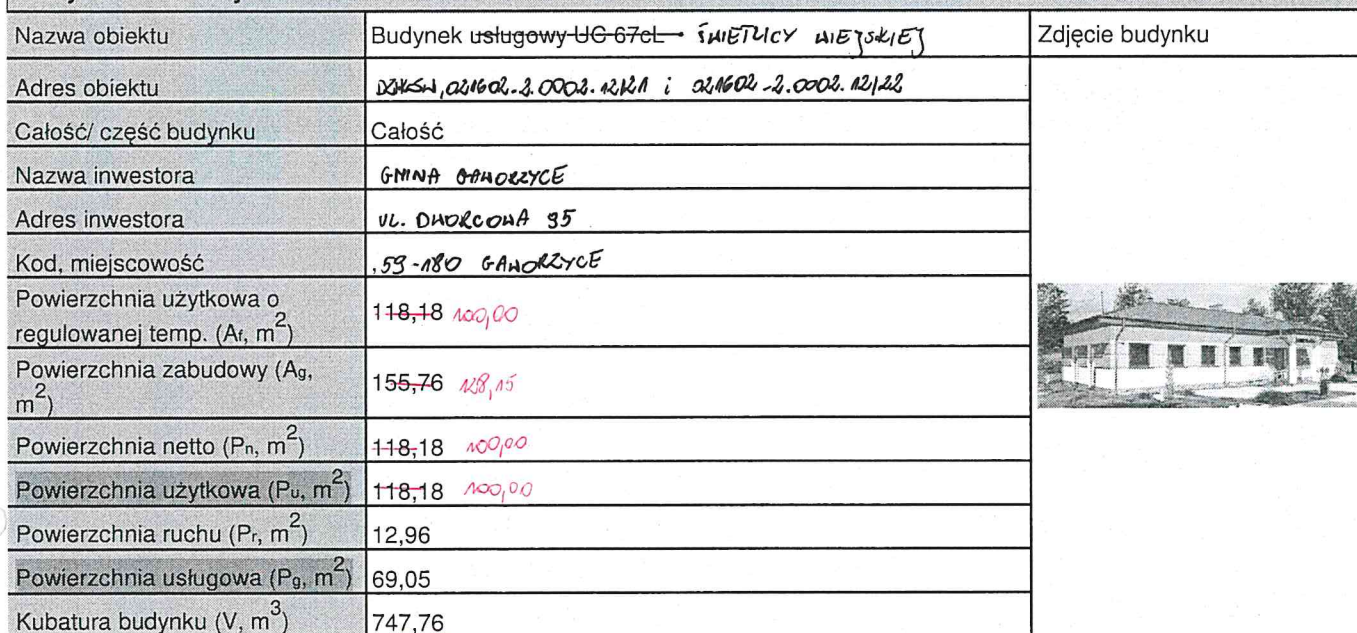 Nazwa obiektu Budynek usługowy UC 67cL ŚWIETLICY WIEJSKIEJ Zdjęcie budynku
Adres obiektu 021602-2.0002.12/21 i 021602-2.0002.12/22
Całość/ część budynku Całość
Nazwa inwestora GMINA GAWORZYCE
Adres inwestora UL. DWORCOWA 95
Kod, miejscowość ,59-180 GAWORZYCE
Powierzchnia użytkowa o
regulowanej temp. (Af, m2) 118,18 100,00
Powierzchnia zabudowy (Ag,
m2) 155,76 128,15
Powierzchnia netto (Pn, m2) 118,18 100,00
Powierzchnia użytkowa (Pu, m2) 118,18 100,00
Powierzchnia ruchu (Pr, m2) 12,96
Powierzchnia usługowa (Pg, m2) 69,05
Kubatura budynku (V, m3) 747,76